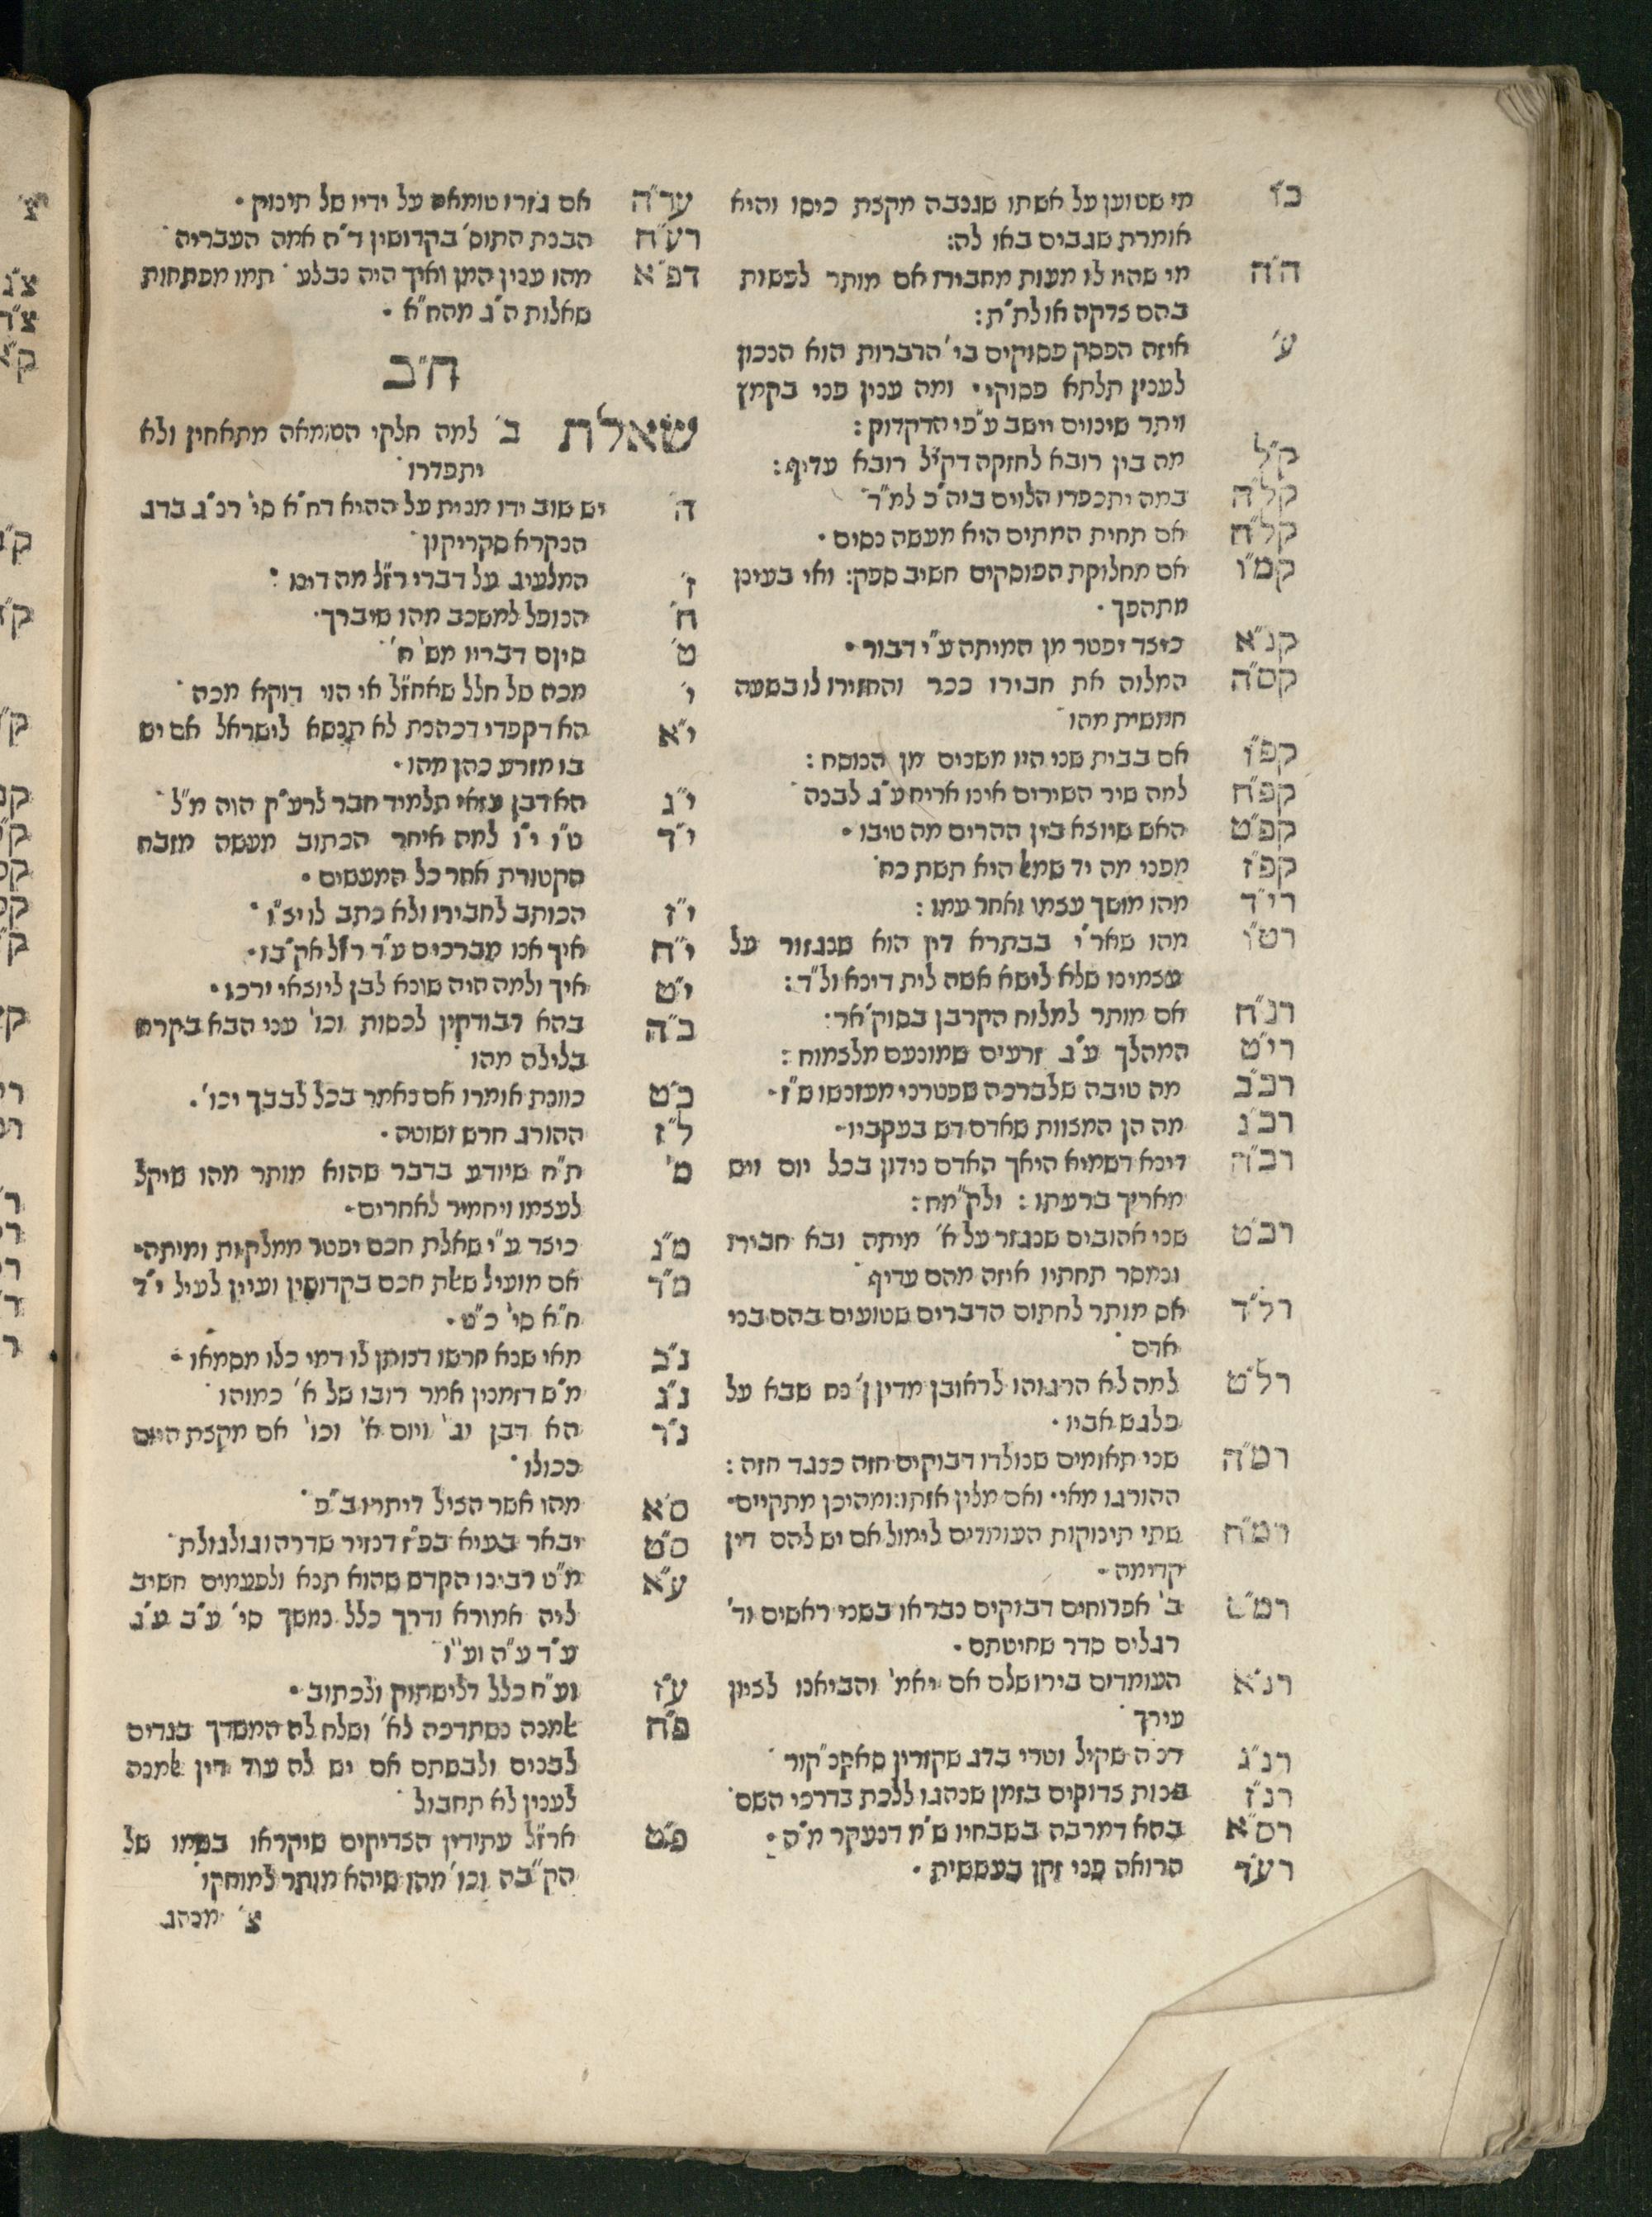 כ"ו מי שטוען על אשתו שגנבה מקצת כיסו והיא
אומרת שגבים באו לה:
ה"ה מי שהיו לו מעות מחבירו אם מותר לעשות
בהם צדקה או לת"ת:
ע' איזה הפסק פסוקים בי' הדברות הוא הנכון
לענין תלתא פסוקי• ומה ענין פני בקמץ
ויתר שינוים יישב ע"פי הדקדוק:
ק"ל מה בין רובא לחזקה דקי"ל רובא עדיף:
קל"ה במה יתכפרו הלוים ביה"כ למ"ד
קל"ח אם תחית המתים היא מעשה נסים•
קמ"ו אם מחלוקת הפוסקים חשיב ספק: ואי בעינן
מתהפך•
קנ"א כיצד יפטר מן המיתה ע"י דבור•
קס"ה המלוה את חבירו ככר והחזירו לו בשעה
חמשית מהו
קפ"ו אם בבית שני היו משנים מן הנוסח:
קפ"ח למה שיר השירים אינו אריח ע"ג לבנה
קפ"ט האש שיוצא בין ההרים מה טיבו•
קפ"ז מפני מה יד שמאל היא תשת כח
רי"ד מהו מושך עצמו ואחר עמו:
רט"ו מהו שאר"י בבתרא דין הוא שנגזור על
עצמינו שלא לישא אשה לית דינא ול"ד:
רנ"ח אם מותר למלוח הקרבן בסוק'אר:
רי"ט המהלך ע"ג זרעים שמונעם מלצמוח:
רכ"ב מה טיבה שלברכה שפטרני מעונשו ש"ז•
רכ"ג מה הן המצוות שאדם דש בעקביו•
רכ"ה דינא דשמיא היאך האדם נידון בכל יום ויש
מאריך ברעתו: ולק"מח:
רכ"ט שני אהובים שנגזר על א' מיתה ובא חבירו
ונמסר תחתיו איזה מהם עדיף
רל"ד אם מותר לחתום הדברים שטועים בהם בני
אדם
רל"ט למה לא הרגוהו לראובן מדין ן' נח שבא על
פלגש אביו•
רמ"ה שני תאומים שנולדו דבוקים חזה כנגד חזה:
ההורגו מאי• ואם מלין אותו: ומהיכן מתקיים•
רמ"ח שתי תינוקות העומדים לימול אם יש להם דין
קדימה•
רמ"ט ב' אפרוחים דבוקים נבראו בשני ראשים וד'
רגלים סדר שחיטתם•
רנ"א העומדים בירושלם אם יאמ' והביאנו לציון
עירך
רנ"ג דכ"ה שקיל וטרי בדג שקורין סאפנ"קור
רנ"ז בנות צדוקים בזמן שנהגו ללכת בדרכי השם
רס"א בהא דמרבה בשבחיו ש"מ דנעקר מ"ה•
רע"ד הרואה פני זקן בעששית•
ער"ה אם גזרו טומאה על ידיו של תינוק•
רע"ח הבנת התוס' בקדושין ד"ח אמה העבריה
דפ"א מהו ענין המן ואיך היה נבלע• תמו מפתחות
שאלות ה"ג מהח"א•
ח"ב
שאלת ב' למה חלקי הטומאה מתאחין ולא
יתפדרו
ה' יש שוב ידו מנית על ההיא דח"א סי' רנ"ג בדג
הנקרא סקריקון
ז' המלעיג על דברי רז"ל מה דינו:
ח' הנופל למשכב מהו שיברך•
ט' סיום דבריו מס' ח'
י' מכה של חלל שאחז"ל אי הוי דוקא מכה
י"א הא דקפדי דכהנת לא תנשא לישראל אם יש
בו מזרע כהן מהו•
י"ג הא דבן עזאי תלמיד חבר לרע"ק הוה מ"ל
י"ד ט"ו י"ו למה איחר הכתוב מעשה מזבח
הקטורת אחר כל המעשים•
י"ז הכותב לחבירו ולא כתב לו יצ"ו•
י"ח איך אנו מברכים ע"ד רז"ל אק"בו•
י"ט איך ולמה היה שונא לבן ליוצאי ירכו•
כ"ה בהא דבודקין לכסות וכו' עני הבא בקרם
בלילה מהו
כ"ט כוונת אומרו אם נאמר בכל לבבך וכו'.
ל"ז ההורג חרש ושוטה•
מ' ת"ח שיודע בדבר שהוא מותר מהו שיקל
לעצמו ויחמיר לאחרים•
מ"ג כיצד ע"י שאלת חכם יפטר ממלקות ומיתה•
מ"ד אם מועיל שאלת חכם בקדושין ועיין לעיל י"ד
ח"א סי' כ"ט•
נ"ב מאי שנא חרשו דנותן לו דמי כלו מסמאו•
נ"ג מ"ש דזמנין אמר רובו של א' כמוהו
נ"ד הא דבן יג' ויום א' וכו' אם מקצת היום
ככולו
ס"א מהו אשר הציל דיתרו ב"פ
ס"ט יבאר בעיא בפ"ז דנזיר שדרה וגולגולת
ע"א מ"ט רבינו הקדש שהוא תנא ולפעמים חשיב
ליה אמורא ודרך כלל נמשך סי' ע"ב ע"ג
ע"ד ע"ה וע"ו
ע"ז וע"ח כלל דלישתוק ולכתוב•
פ"ח אלמנה נשתדכה לא' ושלח לה המשדך בגדים
לבנים ולבשתם אם יש לה עוד דין אלמנה
לענין לא תחבול
פ"ט ארז"ל עתידין הצדיקים שיקראו בשמו של
הק"בה וכו' מהו שיהא מותר למוחקו
צ' מנהג